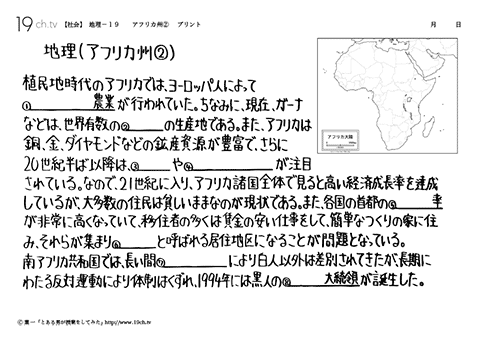 19 ch.tv 【社会】 地理－１９ アフリカ州② プリント 月 日
地理(アフリカ州②)
植民地時代のアフリカでは、ヨーロッパ人によって
①＿＿＿＿農業が行われていた。ちなみに、現在、ガーナ
などは、世界有数の②＿＿＿＿の生産地である。また、アフリカは
銅、金、ダイヤモンドなどの鉱産資源が豊富で、さらに
20世紀半ば以降は、③＿＿＿＿や④＿＿＿＿が注目
されている。なので、21世紀に入り、アフリカ諸国全体で見ると高い経済成長率を達成
しているが、大多数の住民は貧しいままなのが現状である。また、各国の首都の⑤＿＿＿＿率
が非常に高くなっていて、移住者の多くは賃金の安い仕事をして、簡単なつくりの家に住
み、それらが集まり⑥＿＿＿＿と呼ばれる居住地区になることが問題となっている。
南アフリカ共和国では、長い間⑦＿＿＿＿により白人以外は差別されてきたが、長期に
わたる反対運動により体制はくずれ、1994年には黒人の⑧＿＿＿＿大統領が誕生した。
アフリカ大陸
© 葉一「とある男が授業をしてみた」http://www.19ch.tv